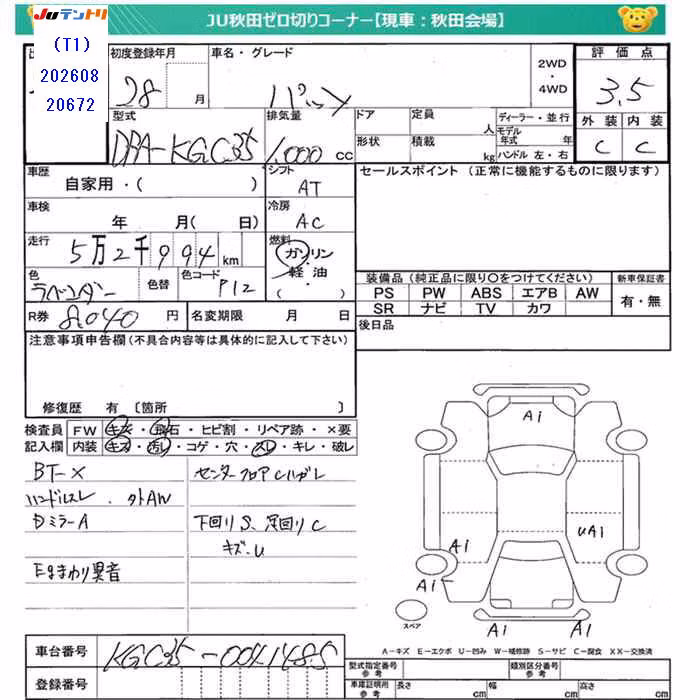 JUテントリ
JU秋田ゼロ切りコーナー【現車：秋田会場】
(T1)
202608
20672
初度登録年月
28 月
車名・グレード
パッソ
2WD
・
4WD
評価点
3.5
型式
DBA-KGC35
排気量
1,000 cc
ドア
形状
定員 人
積載 kg
ディーラー・並行
モデル年式 年
ハンドル 左・右
外装 内装
C C
車歴
自家用・( )
シフト
AT
セールスポイント (正常に機能するものに限ります)
車検
年 月( 日)
冷房
AC
走行
5万2千994km
燃料
ガソリン
軽油
・
( )
色
ラベンダー
色替
色コード
P12
装備品 (純正品に限り○をつけてください)
新車保証書
PS PW ABS エアB AW
SR ナビ TV カワ
有・無
R券 8040 円
名変期限 月 日
後日品
注意事項申告欄(不具合内容等は具体的に記入して下さい)
修復歴 有 〔箇所 〕
検査員記入欄
FW キズ・飛石・ヒビ割・リペア跡・×要
内装 キズ・汚レ・コゲ・穴・スレ・キレ・破レ
BT-×
ハンドルスレ . 外AW
センターフロアCハガレ
Dミラー A
下回りS、足回りC
キズ・U
Egまわり異音
A1
A1
UA1
A1
A1
A1
スペア
A－キズ E－エクボ U－凹み W－補修跡 S－サビ C－腐食 XX－交換済
車台番号 KGC35-0021485
登録番号
型式指定番号
参考
類別区分番号
参考
車庫証明用
参考
長さ cm
幅 cm
高さ cm